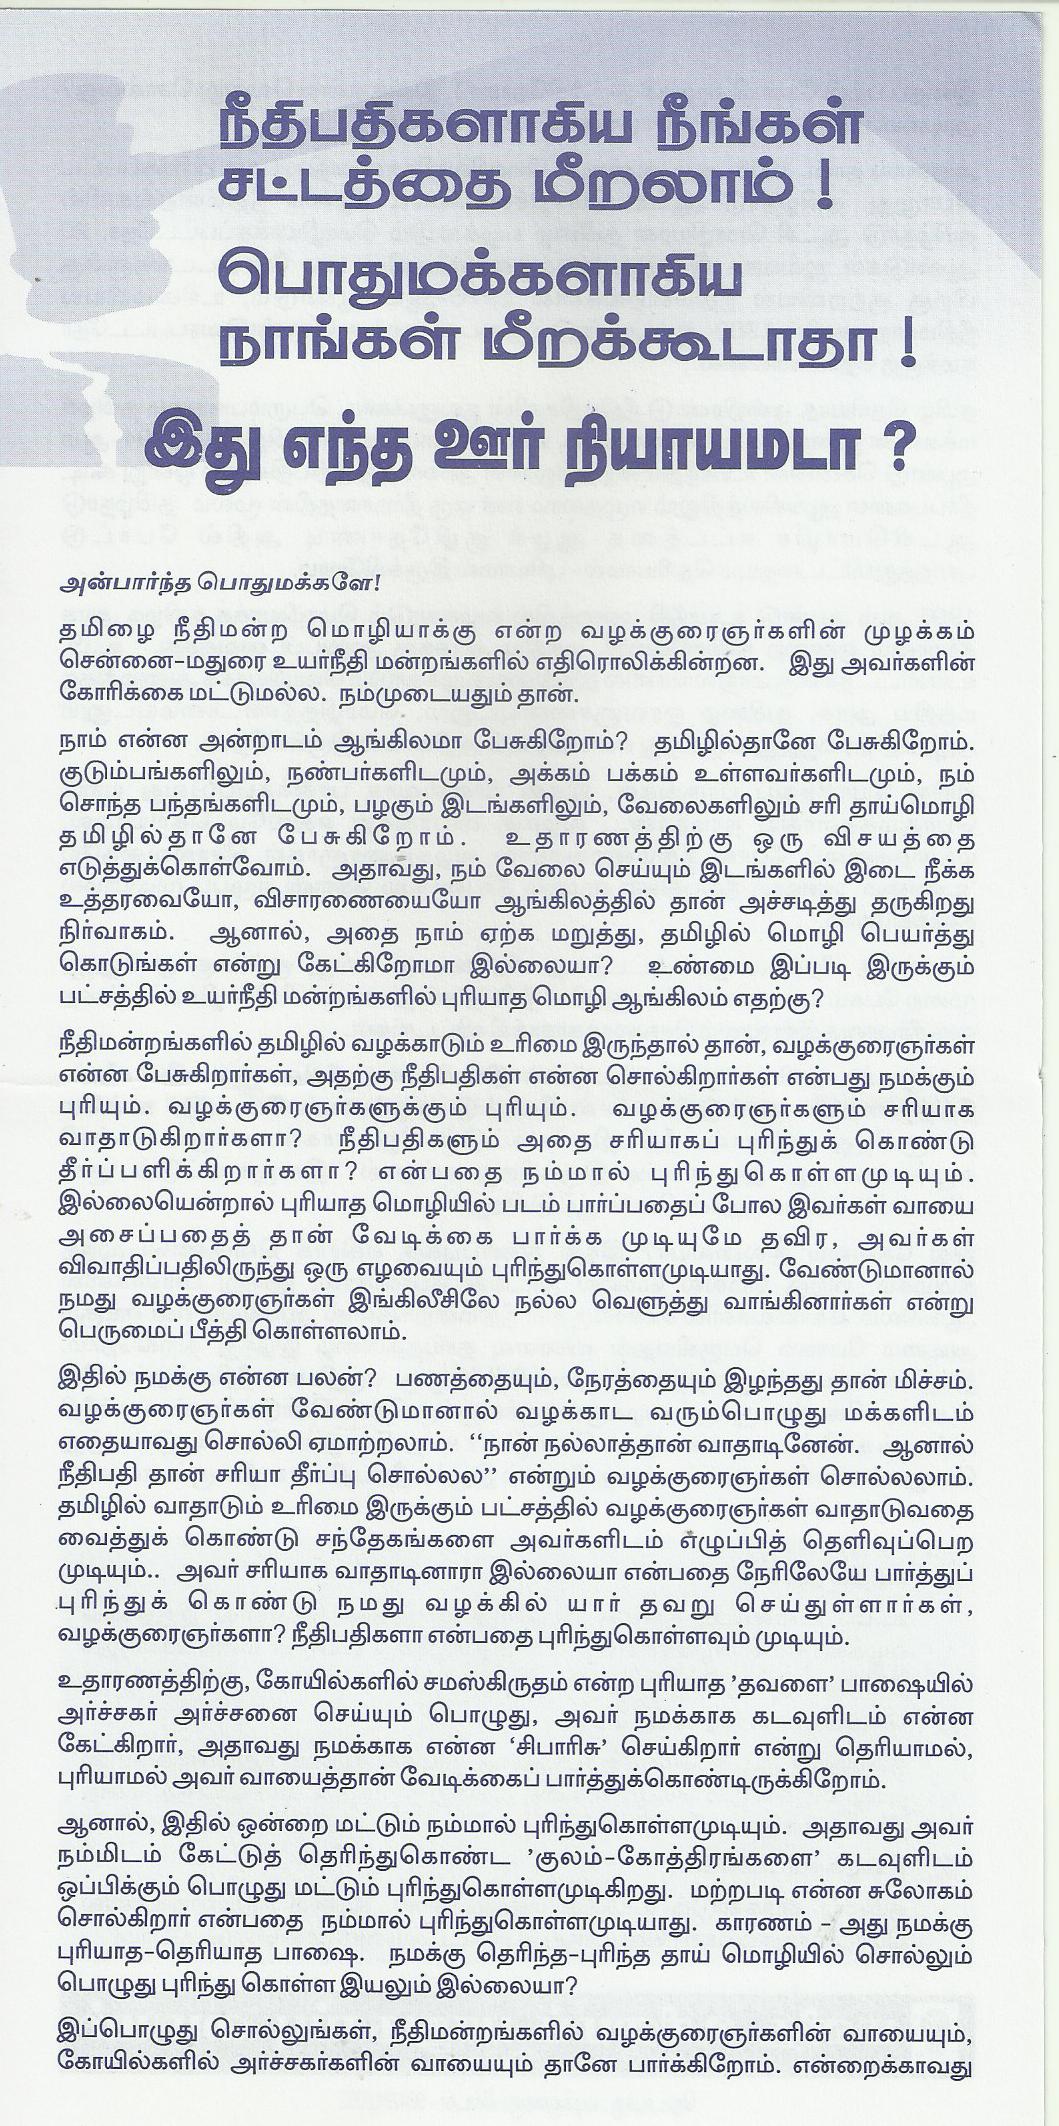 நீதிபதிகளாகிய நீங்கள்
சட்டத்தை மீறலாம் !
பொதுமக்களாகிய
நாங்கள் மீறக்கூடாதா !
இது எந்த ஊர் நியாயமடா ?
அன்பார்ந்த பொதுமக்களே!
தமிழை நீதிமன்ற மொழியாக்கு என்ற வழக்குரைஞர்களின் முழக்கம்
சென்னை-மதுரை உயர்நீதி மன்றங்களில் எதிரொலிக்கின்றன. இது அவர்களின்
கோரிக்கை மட்டுமல்ல. நம்முடையதும் தான்.
நாம் என்ன அன்றாடம் ஆங்கிலமா பேசுகிறோம்? தமிழில்தானே பேசுகிறோம்.
குடும்பங்களிலும், நண்பர்களிடமும், அக்கம் பக்கம் உள்ளவர்களிடமும், நம்
சொந்த பந்தங்களிடமும், பழகும் இடங்களிலும், வேலைகளிலும் சரி தாய்மொழி
தமிழில்தானே பேசுகிறோம். உதாரணத்திற்கு ஒரு விசயத்தை
எடுத்துக்கொள்வோம். அதாவது, நம் வேலை செய்யும் இடங்களில் இடை நீக்க
உத்தரவையோ, விசாரணையையோ ஆங்கிலத்தில் தான் அச்சடித்து தருகிறது
நிர்வாகம். ஆனால், அதை நாம் ஏற்க மறுத்து, தமிழில் மொழி பெயர்த்து
கொடுங்கள் என்று கேட்கிறோமா இல்லையா? உண்மை இப்படி இருக்கும்
பட்சத்தில் உயர்நீதி மன்றங்களில் புரியாத மொழி ஆங்கிலம் எதற்கு?
நீதிமன்றங்களில் தமிழில் வழக்காடும் உரிமை இருந்தால் தான், வழக்குரைஞர்கள்
என்ன பேசுகிறார்கள், அதற்கு நீதிபதிகள் என்ன சொல்கிறார்கள் என்பது நமக்கும்
புரியும். வழக்குரைஞர்களுக்கும் புரியும். வழக்குரைஞர்களும் சரியாக
வாதாடுகிறார்களா? நீதிபதிகளும் அதை சரியாகப் புரிந்துக் கொண்டு
தீர்ப்பளிக்கிறார்களா? என்பதை நம்மால் புரிந்துகொள்ளமுடியும்.
இல்லையென்றால் புரியாத மொழியில் படம் பார்ப்பதைப் போல இவர்கள் வாயை
அசைப்பதைத் தான் வேடிக்கை பார்க்க முடியுமே தவிர, அவர்கள்
விவாதிப்பதிலிருந்து ஒரு எழவையும் புரிந்துகொள்ளமுடியாது. வேண்டுமானால்
நமது வழக்குரைஞர்கள் இங்கிலீசிலே நல்ல வெளுத்து வாங்கினார்கள் என்று
பெருமைப் பீத்தி கொள்ளலாம்.
இதில் நமக்கு என்ன பலன்? பணத்தையும், நேரத்தையும் இழந்தது தான் மிச்சம்.
வழக்குரைஞர்கள் வேண்டுமானால் வழக்காட வரும்பொழுது மக்களிடம்
எதையாவது சொல்லி ஏமாற்றலாம். “நான் நல்லாத்தான் வாதாடினேன். ஆனால்
நீதிபதி தான் சரியா தீர்ப்பு சொல்லல” என்றும் வழக்குரைஞர்கள் சொல்லலாம்.
தமிழில் வாதாடும் உரிமை இருக்கும் பட்சத்தில் வழக்குரைஞர்கள் வாதாடுவதை
வைத்துக் கொண்டு சந்தேகங்களை அவர்களிடம் எழுப்பித் தெளிவுப்பெற
முடியும்.. அவர் சரியாக வாதாடினாரா இல்லையா என்பதை நேரிலேயே பார்த்துப்
புரிந்துக் கொண்டு நமது வழக்கில் யார் தவறு செய்துள்ளார்கள்,
வழக்குரைஞர்களா? நீதிபதிகளா என்பதை புரிந்துகொள்ளவும் முடியும்.
உதாரணத்திற்கு, கோயில்களில் சமஸ்கிருதம் என்ற புரியாத ’தவளை’ பாஷையில்
அர்ச்சகர் அர்ச்சனை செய்யும் பொழுது, அவர் நமக்காக கடவுளிடம் என்ன
கேட்கிறார், அதாவது நமக்காக என்ன ‘சிபாரிசு’ செய்கிறார் என்று தெரியாமல்,
புரியாமல் அவர் வாயைத்தான் வேடிக்கைப் பார்த்துக்கொண்டிருக்கிறோம்.
ஆனால், இதில் ஒன்றை மட்டும் நம்மால் புரிந்துகொள்ளமுடியும். அதாவது அவர்
நம்மிடம் கேட்டுத் தெரிந்துகொண்ட ’குலம்-கோத்திரங்களை’ கடவுளிடம்
ஒப்பிக்கும் பொழுது மட்டும் புரிந்துகொள்ளமுடிகிறது. மற்றபடி என்ன சுலோகம்
சொல்கிறார் என்பதை நம்மால் புரிந்துகொள்ளமுடியாது. காரணம் - அது நமக்கு
புரியாத-தெரியாத பாஷை. நமக்கு தெரிந்த-புரிந்த தாய் மொழியில் சொல்லும்
பொழுது புரிந்து கொள்ள இயலும் இல்லையா?
இப்பொழுது சொல்லுங்கள், நீதிமன்றங்களில் வழக்குரைஞர்களின் வாயையும்,
கோயில்களில் அர்ச்சகர்களின் வாயையும் தானே பார்க்கிறோம். என்றைக்காவது